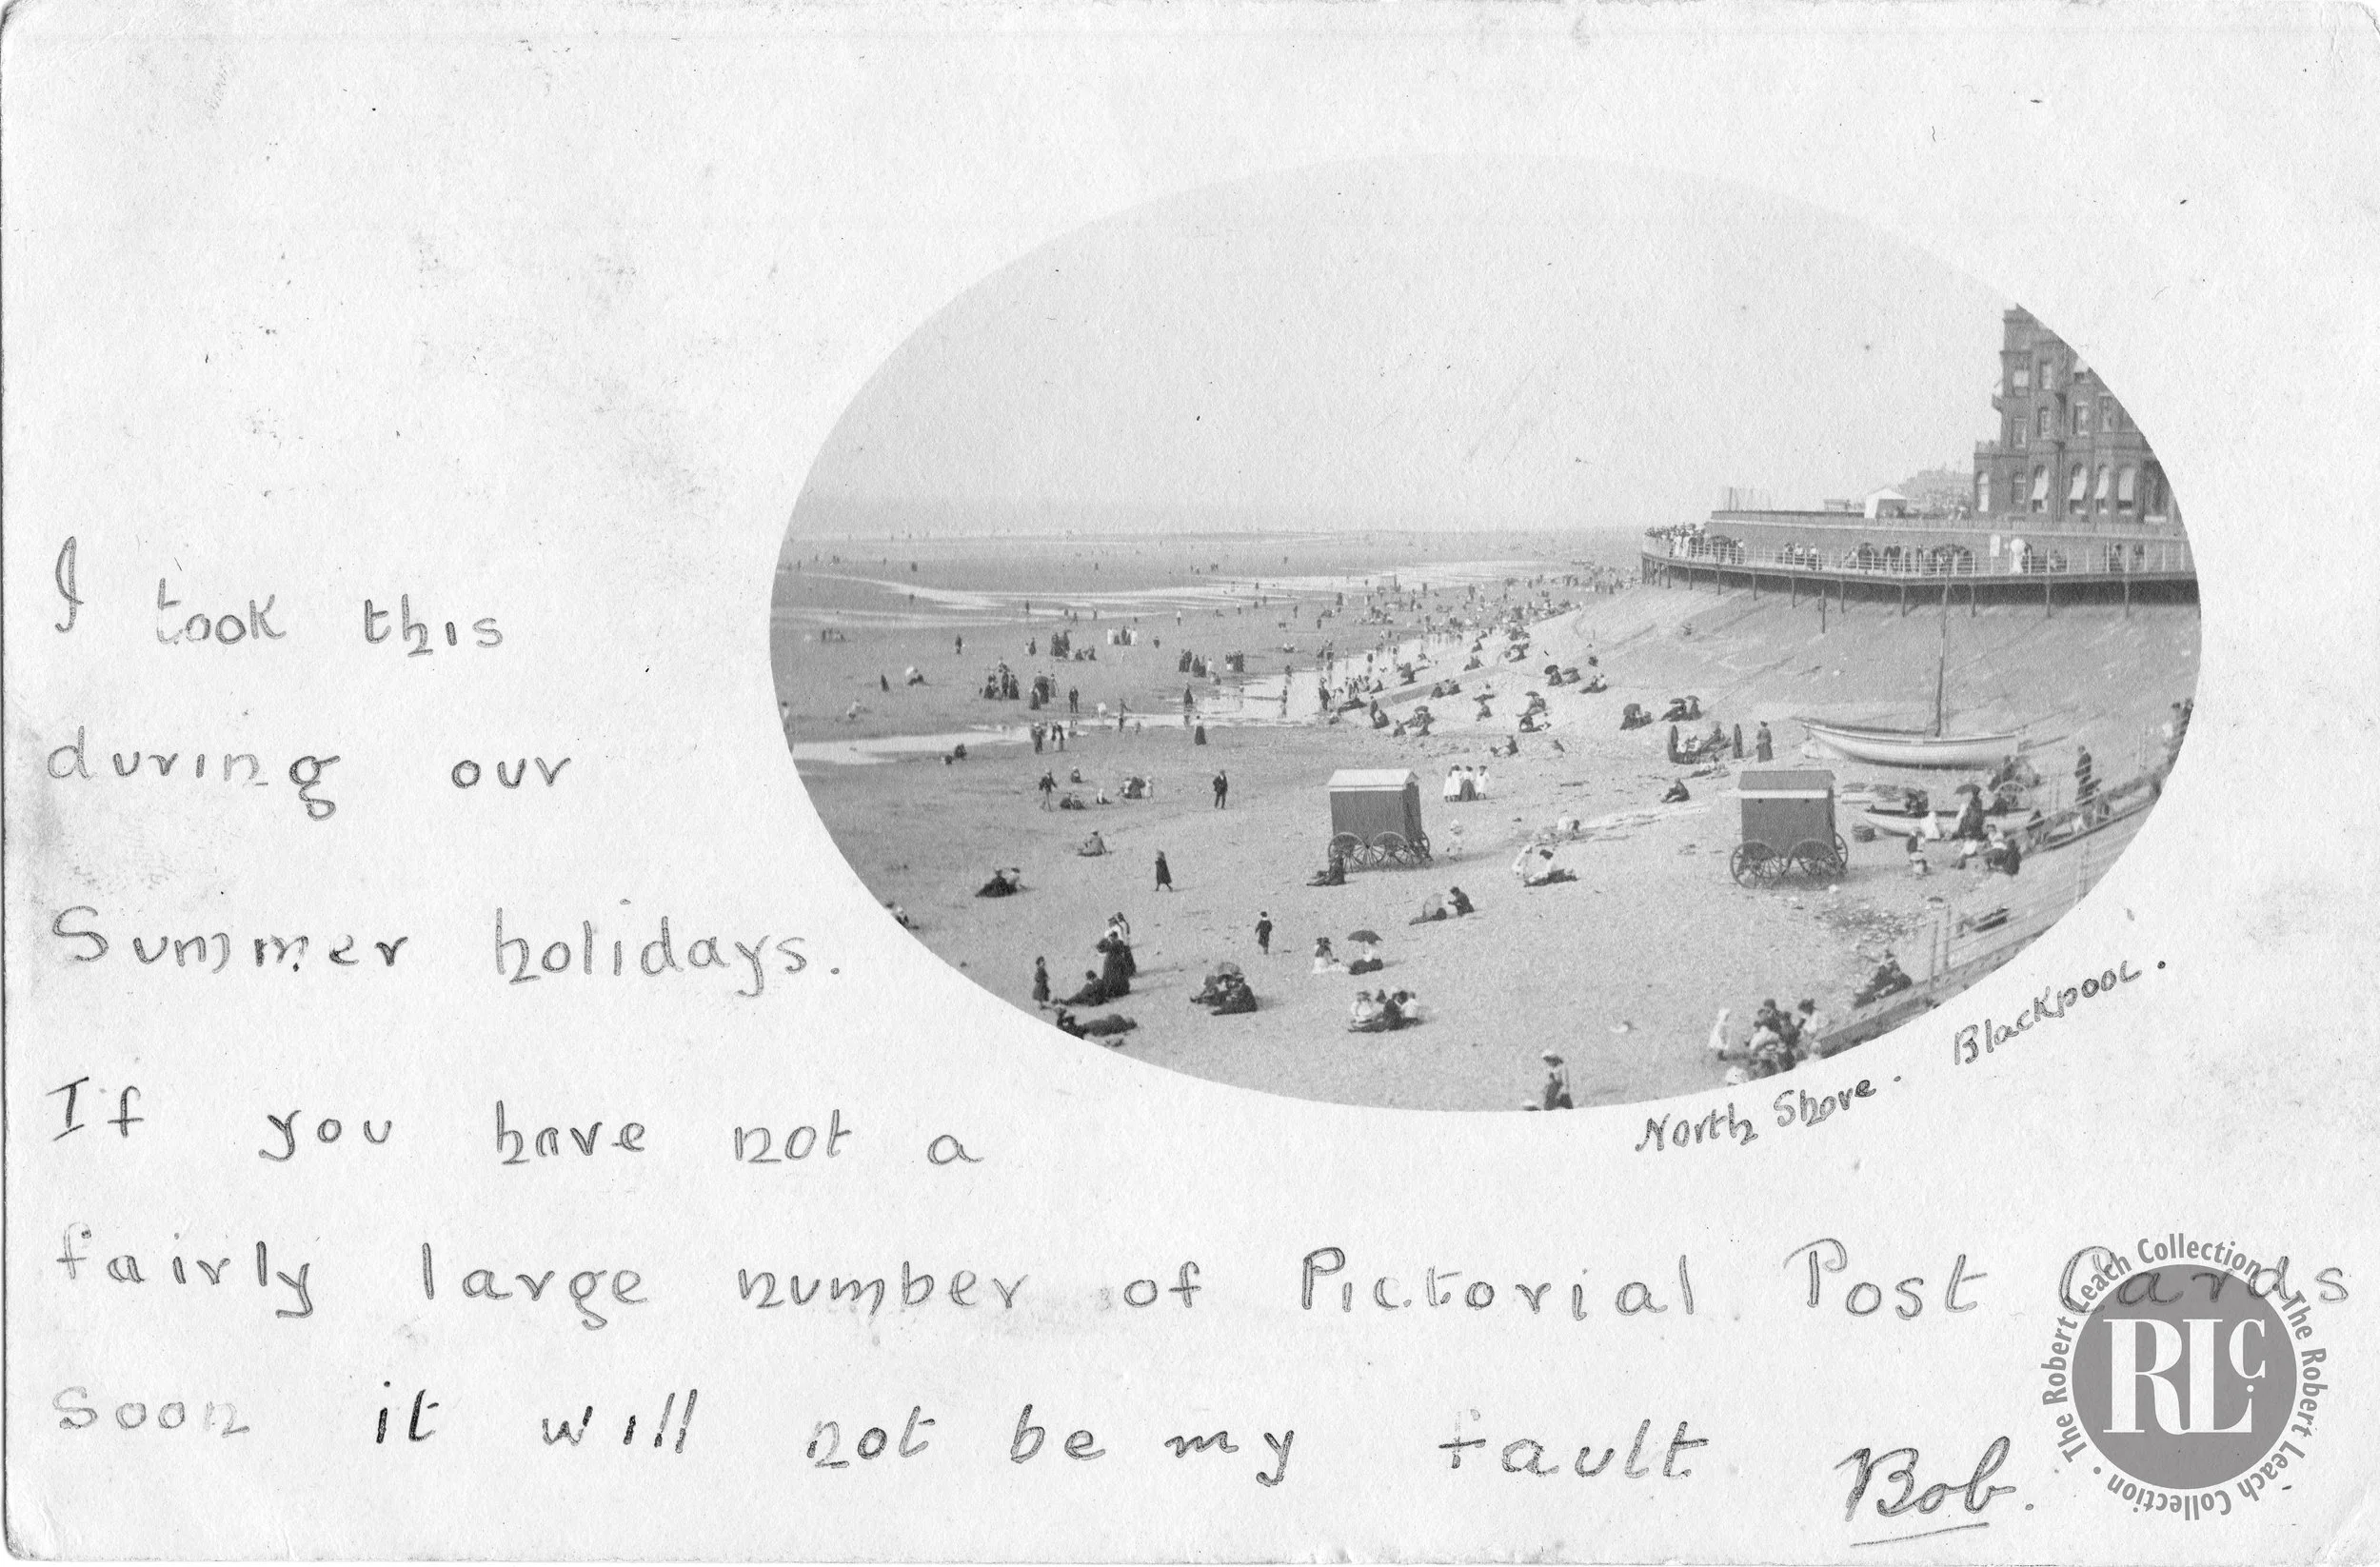 I took this
during our
Summer holidays.
If you have not a
fairly large number of Pictorial Post Cards
soon it will not be my fault
Bob.
North Shore. Blackpool.
The Robert Leach Collection • The Robert Leach Collection •
RLC